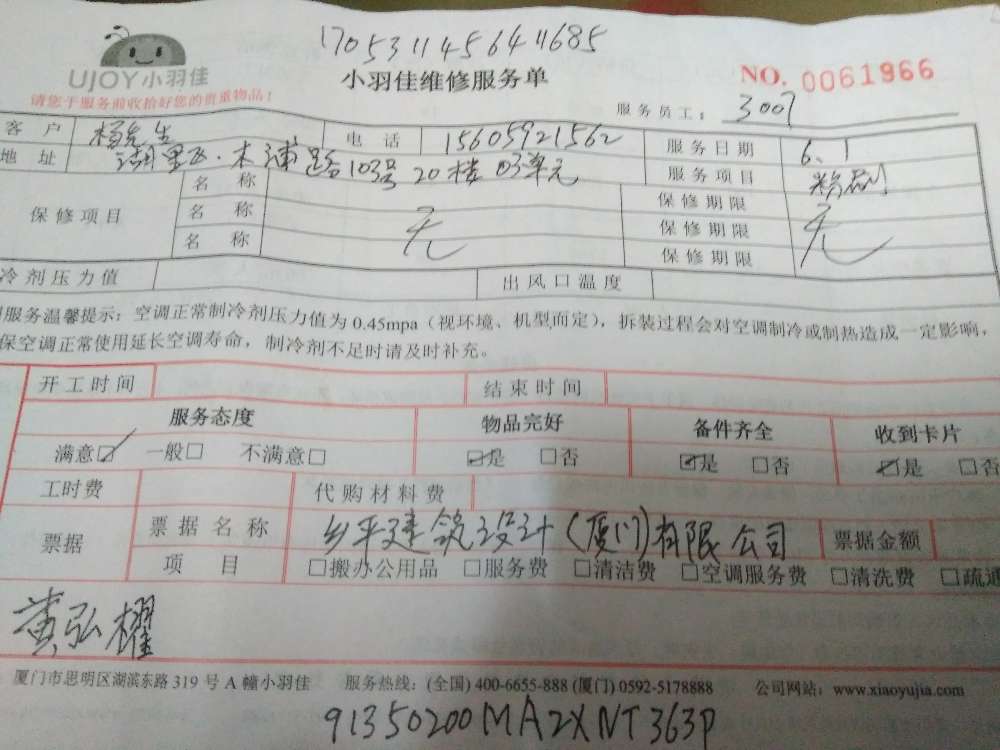 170531145641685
UJOY小羽佳
小羽佳维修服务单
NO. 0061966
请您于服务前收拾好您的贵重物品！
服务员工： 3007
客 户 杨先生 电 话 15605921562 服务日期 6.1
地 址 湖里区.木浦路103号20楼03单元 服务项目 粉刷
保修项目 名 称 无 保修期限 无
名 称 保修期限
名 称 保修期限
冷剂压力值 出风口温度
服务温馨提示：空调正常制冷剂压力值为0.45mpa（视环境、机型而定），拆装过程会对空调制冷或制热造成一定影响，
保空调正常使用延长空调寿命，制冷剂不足时请及时补充。
开工时间 结束时间
服务态度 物品完好 备件齐全 收到卡片
满意☑ 一般□ 不满意□ ☑是 □否 ☑是 □否 ☑是 □否
工时费 代购材料费
票据 票据名称 乡平建筑设计（厦门）有限公司 票据金额
项 目 □搬办公用品 □服务费 □清洁费 □空调服务费 □清洗费 □疏通
黄弘櫂
厦门市思明区湖滨东路319号A幢小羽佳 服务热线：(全国) 400-6655-888 (厦门) 0592-5178888 公司网站：www.xiaoyujia.com
91350200MA2XNT363P